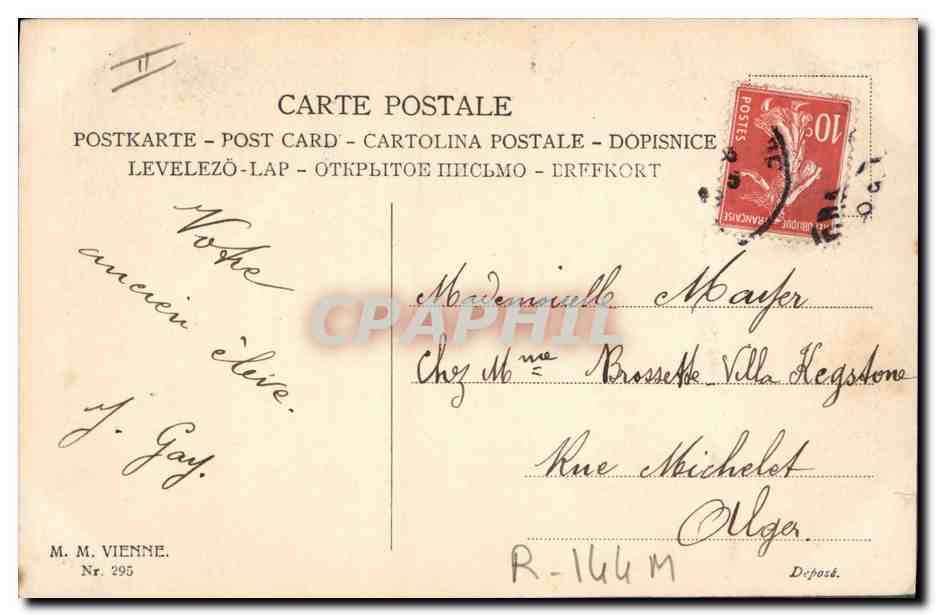 II
CARTE POSTALE
POSTKARTE – POST CARD – CARTOLINA POSTALE – DOPISNICE
LEVELEZŐ-LAP – ОТКРЫТОЕ ПИСЬМО – BREFKORT
10c
POSTES
REPUBLIQUE FRANÇAISE
Votre
ancien élève.
J. Gay.
CPAPHIL
Mademoiselle Mayer
Chez Mme Brossette Villa Kegstone
Rue Michelet
Alger
M. M. VIENNE.
Nr. 295
R-144M
Deposé.